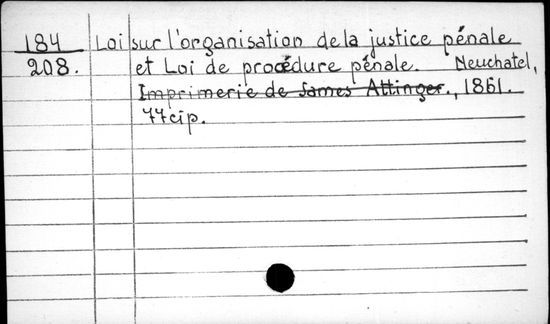 184 Loi sur l'organisation de la justice pénale
208. et Loi de procédure pénale. Neuchatel,
Imprimerie de James Attinger., 1861.
77 c/p.